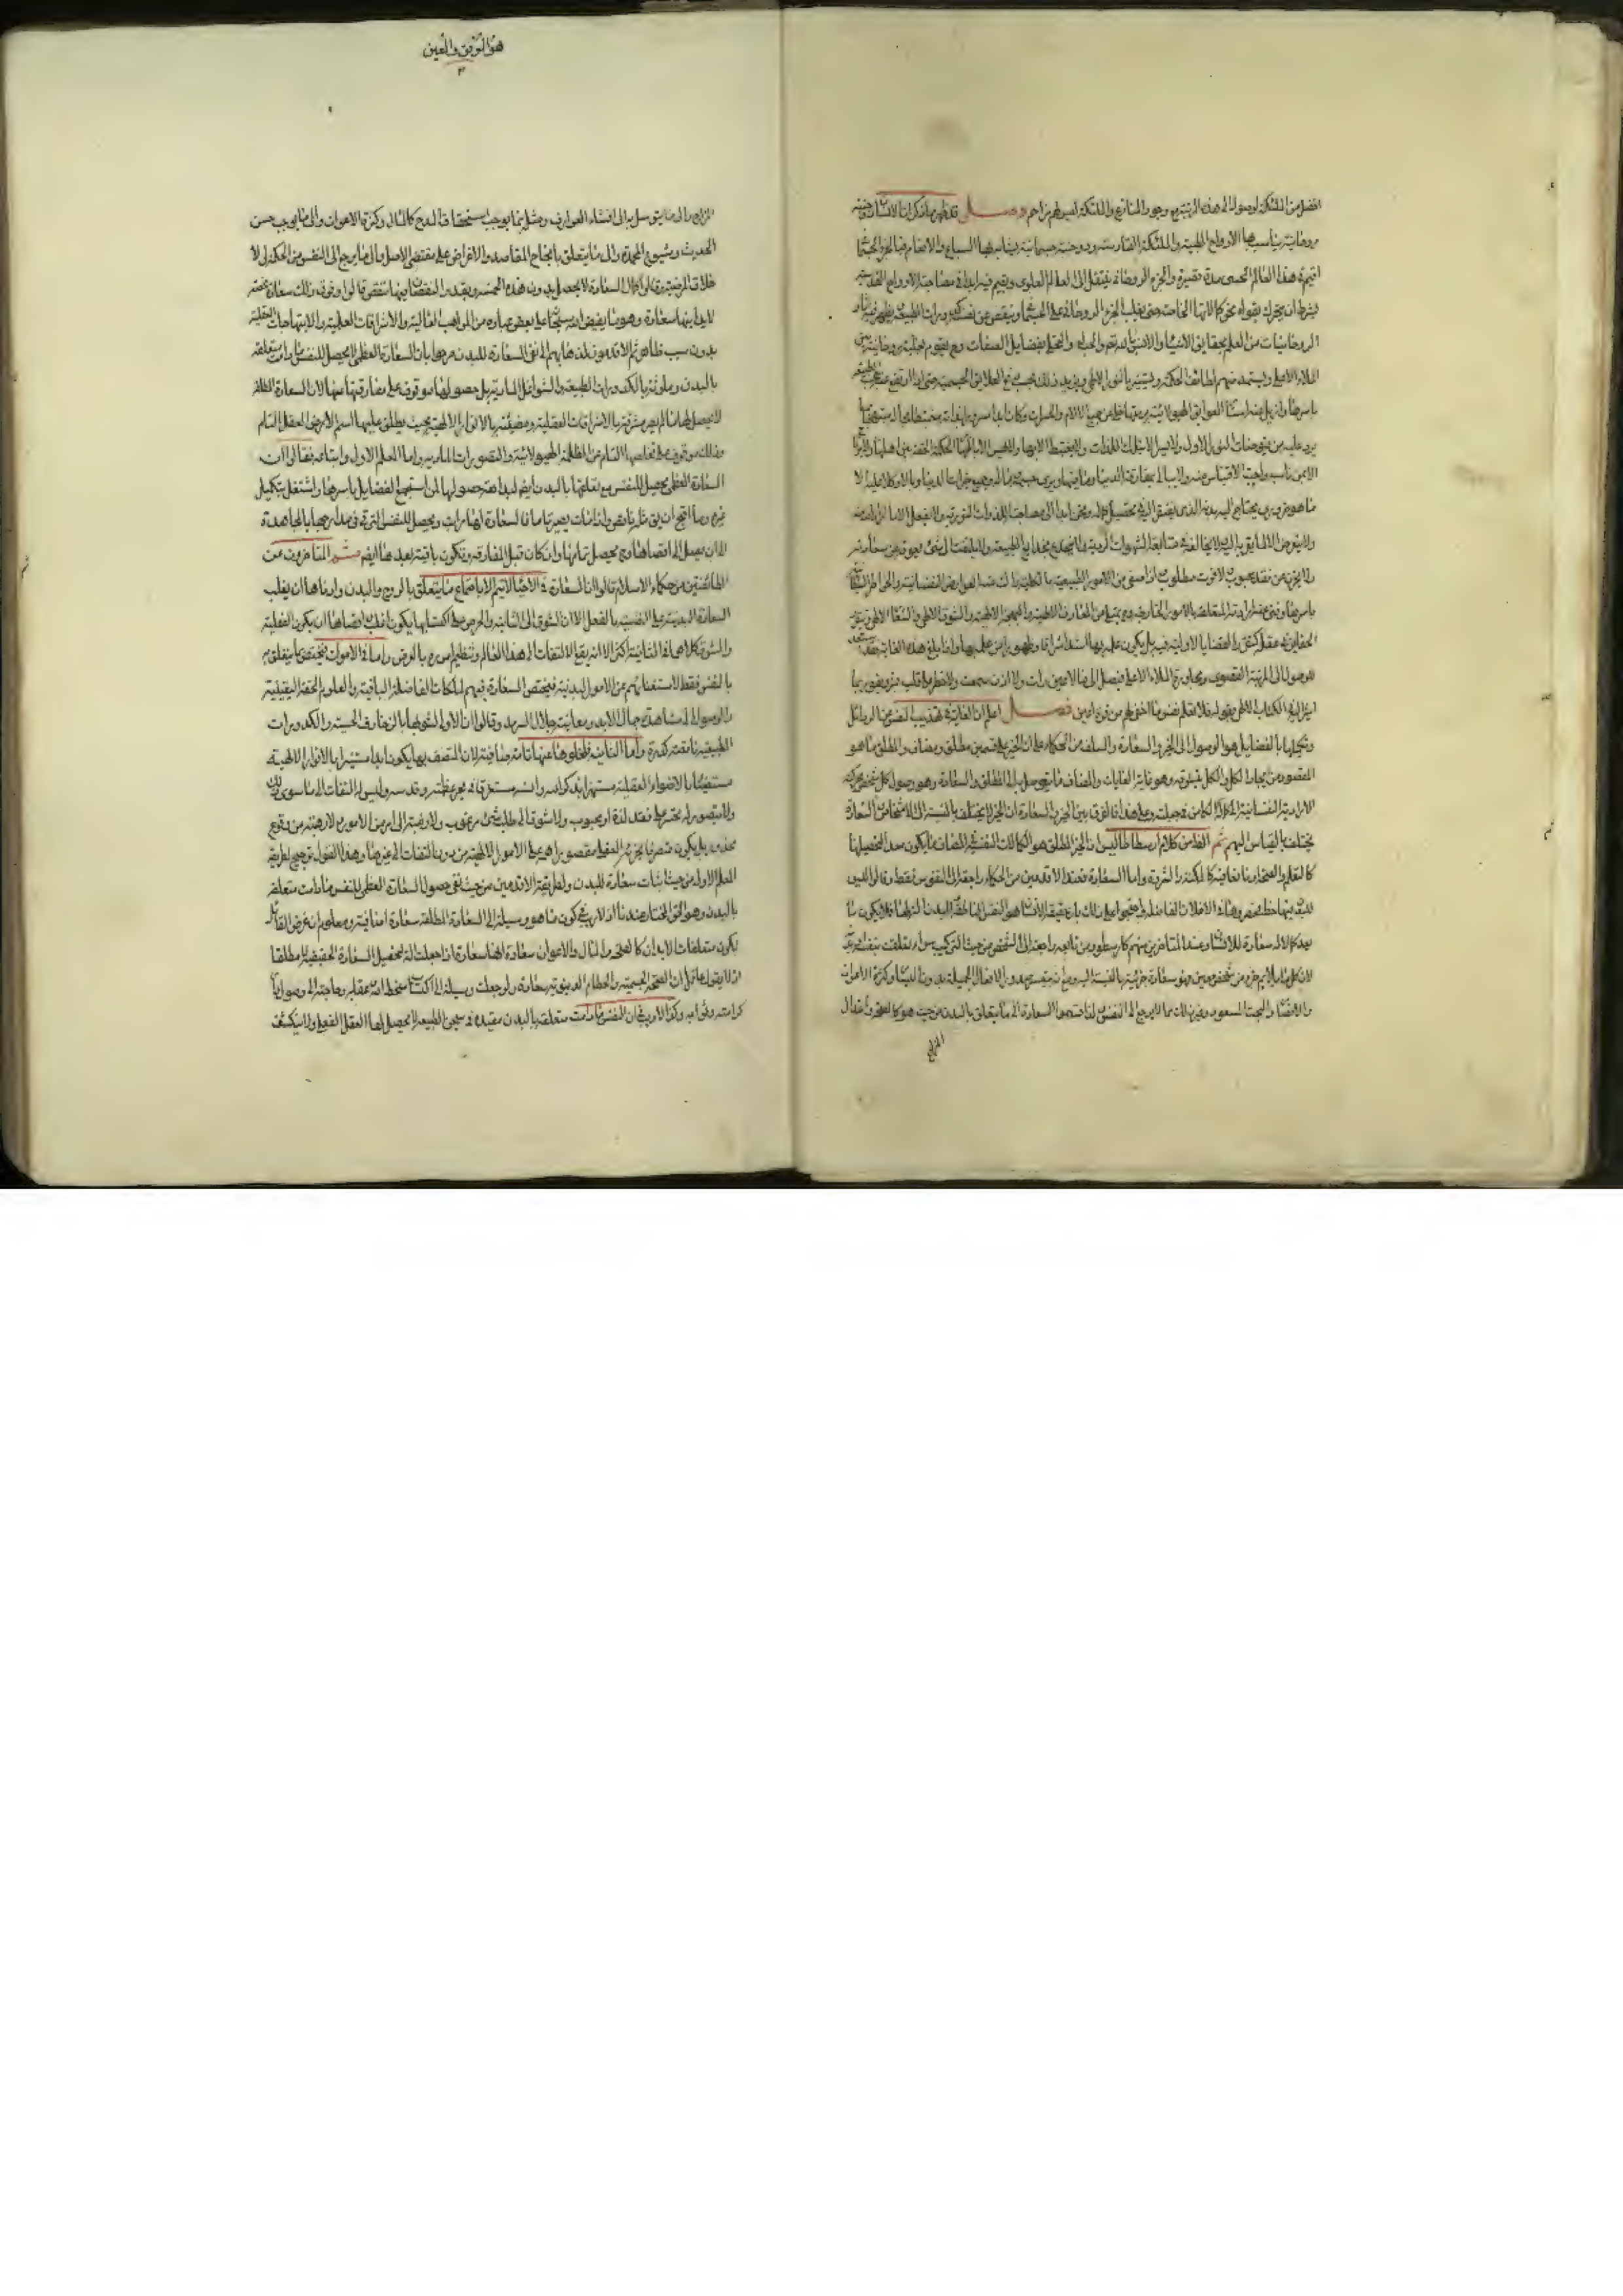 افضل من الملئكة لوصوله الى هذه الرتبة مع وجود المنازع والملئكة ليس لهم مزاحم فصل قد ظهر بما ذكر ان للانسان جنبة
روحانية يناسب بها الارواح الطيبة والملئكة القادسة وجنبة جسمانية يناسب بها السباع والانعام فبالجزء الجسماني
يقيم في هذا العالم الحسي مدة قصيرة وبالجزء الروحاني ينتقل الى العالم العلوي ويقيم فيه ابدا في مصاحبة الارواح القدسية
بشرط ان يتحرك بقواه نحو كمالاتها الخاصة حتى يغلب الجزء الروحاني على الجسماني وينفض عن نفسه كدورات الطبيعة ويظهر فيه آثار
الروحانيات من العلم بحقايق الاشياء والانس بالله تعم والحب له والتحلي بفضايل الصفات وح يقوم بغلبة روحانيته بين
الملاء الاعلى ويستمد منهم لطائف الحكمة ويستنير بالنور الالهي ويزيد ذلك بحسب رفع العلايق الجسمية حتى اذا ارتفع عنه حجب الطبيعة
باسرها وازيل عنه استار العوايق الهيولانية برمتها خلى عن جميع الالام والحسرات وكان ابدا مسرورا بذاته مغتبطا بحاله مبتهجا بما
يرد عليه من فيوضات النور الاول ولا يسر الا بتلك اللذات ولا يغتبط الا بها ولا يهش الا باظهار الحكمة الحقة بين اهلها ولا يرتاح
الا بمن ناسبه واحب الاقتباس منه ولا يبالي بمفارقة الدنيا وما فيها ويرى جسمه وماله وجميع خيرات الدنيا وبالا وكلا عليه الا
ما هو ضروري يحتاج اليه بدنه الذي يفتقر اليه في تحصيل كماله ويحن ابدا الى مصاحبة الذوات النورية ولا يفعل الا ما اراد الله منه
ولا يتعرض الا لما يقربه اليه ولا يخالفه في متابعة الشهوات الردية ولا ينخدع بخدايع الطبيعة ولا يلتفت الى شيء يعوقه عن سعادته
ولا يحزن عن فقد محبوب ولا فوت مطلوب واذا صفى عن الامور الطبيعية بالكلية زالت عنه العوارض النفسانية والخواطر الشيطانية
باسرها وفنى عنه ارادته المتعلقة بالامور الخارجة وح يمتلى من المعارف الالهية والبهجة الالهية والشوق الالهي والشعار الالهي ويتقرر
الحقايق في عقله كتقرر القضايا الاولية فيه بل يكون علمه بها اشد اشراقا وظهورا من علمه بها واذا بلغ هذه الغاية فقد استعد
للوصول الى المرتبة القصوى ومجاورة الملاء الاعلى فيصل الى ما لا عين رات ولا اذن سمعت ولا خطر على قلب بشر ويفوز بما
اشير اليه في الكتاب الالهي بقوله فلا تعلم نفس ما اخفى لهم من قرة اعين فصل اعلم ان الغاية في تهذيب النفس عن الرذائل
وتحليتها بالفضايل هو الوصول الى الخير والسعادة والسلف من الحكماء على ان الخير على قسمين مطلق ومضاف والمطلق ما هو
المقصود من ايجاد الكل والكل يشوقه وهو غاية الغايات والمضاف ما يتوصل به الى المطلق والسعادة وهو وصول كل شخص بحركته
الارادية النفسانية الى كماله الكامن في جبلته وعلى هذا فالفرق بين الخير والسعادة ان الخير لا يختلف بالنسبة الى الاشخاص والسعادة
يختلف بالقياس اليهم ثم الظ من كلام ارسطاطاليس ان الخير المطلق هو الكمالات النفسية والمضاف ما يكون معدا لتحصيلها
كالتعلم والصحة او نافعا فيه كالمكنة والثروة واما السعادة فعند الاقدمين من الحكماء راجعة الى النفوس فقط وقالوا ليس
للبدن فيها حظ فحصروها في الاخلاق الفاضلة واحتجوا على ذلك بان حقيقة الانسان هو النفس الناطقة والبدن آلة لها فلا يكون ما
يعد كمالا له سعادة للانسان وعند المتاخرين منهم كارسطو ومن تابعه راجعة الى الشخص من حيث التركيب سواء تعلقت بنفسه او بدنه
لان كل ما يلايم جزء من شخص معين فهو سعادة جزئية بالنسبة اليه مع انه يتعسر صدور الافعال الجميلة بدون اليسار وكثرة الاعوان
والانصار والبخت المسعود وغير ذلك مما لا يرجع الى النفس ولذا قسموا السعادة الى ما يتعلق بالبدن من حيث هو كالصحة واعتدال
المزاج
هو الموفق والمعين
المزاج والى ما يتوسل به الى افشاء العوارف ومثله مما يوجب استحقاق المدح كالمال وكثرة الاعوان والى ما يوجب حسن
الحديث وشيوع المحمدة والى ما يتعلق بانجاح المقاصد والاغراض على مقتضى الامل والى ما يرجع الى النفس من الحكمة والا
خلاق المرضية وقالوا كمال السعادة لا يحصل بدون هذه الخمسة وبقدر النقصان فيها ينتقص قالوا وفوق ذلك سعادة محضة
لا يدانيها سعادة وهو ما يفيض الله سبحانه على بعض عباده من المواهب العالية والاشراقات العلمية والابتهاجات العقلية
بدون سبب ظاهر ثم الاقدمون لذهابهم الى نفي السعادة للبدن صرحوا بان السعادة العظمى لا يحصل للنفس ما دامت متعلقة
بالبدن وملوثة بالكدورات الطبيعية والشواغل المادية بل حصولها موقوف على مفارقتها عنها لان السعادة المطلقة
لا تحصل لها ما لم تصر مشرقة بالاشراقات العقلية ومضيئة بالانوار الالهية بحيث يطلق عليها اسم
وذلك موقوف على تخلصها التام عن الظلمة الهيولانية والقصورات المادية واما المعلم الاول واتباعه فقالوا ان
السعادة العظمى يحصل للنفس مع تعلقها بالبدن ايضا لبداهة حصولها لمن استجمع الفضايل باسرها واشتغل بتكميل
غيره وما اقبح ان يق مثله ناقص واذا مات يصير تاما فالسعادة لها مراتب ويحصل للنفس الترقي في مدارجها بالمجاهدة
الى ان يصل الى اقصاها وح يحصل تمامها وان كان قبل المفارقة ويكون باقية بعدها ايضا ثم المتاخرون من
الطائفتين من حكماء الاسلام قالوا ان السعادة في الاحياء لا يتم الا باجتماع ما يتعلق بالروح والبدن وادناها ان يغلب
السعادة البدنية على النفسية بالفعل الا ان الشوق الى الثانية والحرص على اكتسابها يكون اغلب واقصاها ان يكون الفعلية
والشوق كلاهما في الثانية اكثر الا انه يقع الالتفات الى هذا العالم وتنظيم اموره بالعرض واما في الاموات فيختص بما يتعلق
بالنفس فقط لاستغنائهم عن الامور البدنية فيختص السعادة فيهم بالملكات الفاضلة الباقية والعلوم الحقة اليقينية
والوصول الى مشاهدة جمال الابد ومعاينة جلال السرمد وقالوا ان الاولى لشوبها بالزخارف الحسية والكدورات
الطبيعية ناقصة كدرة واما الثانية فلخلوها عنها تامة صافية لان المتصف بها يكون ابدا مستنيرا بالانوار الالهية
مستضيئا بالاضواء العقلية مستهترا بذكر الله وانسه مستغرقا في بحر عظمته وقدسه وليس له التفات الى ما سوى ذلك
ولا يتصور له تحسر على فقد لذة او محبوب ولا شوق الى طلب شيء مرغوب ولا رغبة الى امر من الامور ولا رهبة من وقوع
محذور بل يكون منصرفا بجزئه العقلي مقصورا همه على الامور الالهية من دون التفات الى غيرها وهذا القول ترجيح لطريقة
المعلم الاول من حيث اثبات سعادة للبدن ولطريقة الاقدمين من حيث نفي حصول السعادة العظمى للنفس ما دامت متعلقة
بالبدن وهو الحق المختار عندنا اذ لا ريب في كون ما هو وسيلة الى السعادة المطلقة سعادة اضافية ومعلوم ان غرض القائل
بكون متعلقات الابدان كالصحة والمال والاعوان سعادة انها سعادة اذا جعلت آلة لتحصيل السعادة الحقيقية لا مطلقا
اذ لا يقول عاقل ان الصحة الجسمية والحطام الدنيوية سعادة ولو جعلت وسيلة الى اكتساب سخط الله وعقابه وحاجبة الى وصول دار
كرامته وثوابه وكذا لا ريب في ان النفس ما دامت متعلقة بالبدن مقيدة في سجن الطبيعة لا يحصل لها العقل الفعلي ولا ينكشف